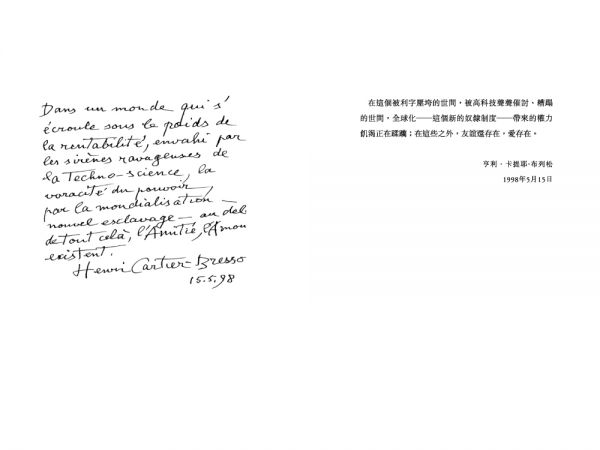 Dans un monde qui s'
écroule sous le poids de
la rentabilité, envahi par
les sirènes ravageuses de
la Techno-science, la
voracité du pouvoir,
par la mondialisation —
nouvel esclavage — au del
de tout celà, l'Amitié, l'Amou
existent.
Henri Cartier-Bresso
15.5.98
在這個被利字壓垮的世間，被高科技聲聲催討、糟蹋
的世間，全球化——這個新的奴隸制度——帶來的權力
飢渴正在蹂躪；在這些之外，友誼還存在，愛存在。
亨利．卡提耶-布列松
1998年5月15日